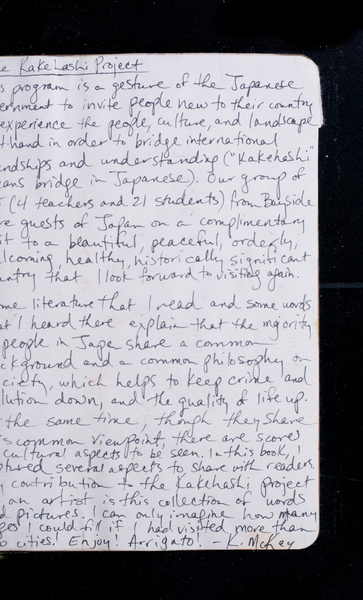 e Kakehashi Project
s program is a gesture of the Japanese
ernment to invite people new to their country
experience the people, culture, and landscape
t-hand in order to bridge international
endships and understanding ("Kakehashi"
eans bridge in Japanese). Our group of
(4 teachers and 21 students) from Bayside
re guests of Japan on a complimentary
it to a beautiful, peaceful, orderly,
lcoming healthy, historically significant
untry that I look forward to visiting again.
me literature that I read and some words
at I heard there explain that the majority
people in Japan share a common
ckground and a common philosophy on
ciety, which helps to keep crime and
llution down, and the quality of life up.
the same time, though they share
s common viewpoint, there are scores
cultural aspects to be seen. In this book, I
ptured several aspects to share with readers.
y contribution to the Kakehashi project
an artist is this collection of words
d pictures. I can only imagine how many
ges I could fill if I had visited more than
o cities! Enjoy! Arrigato! - K. McKey